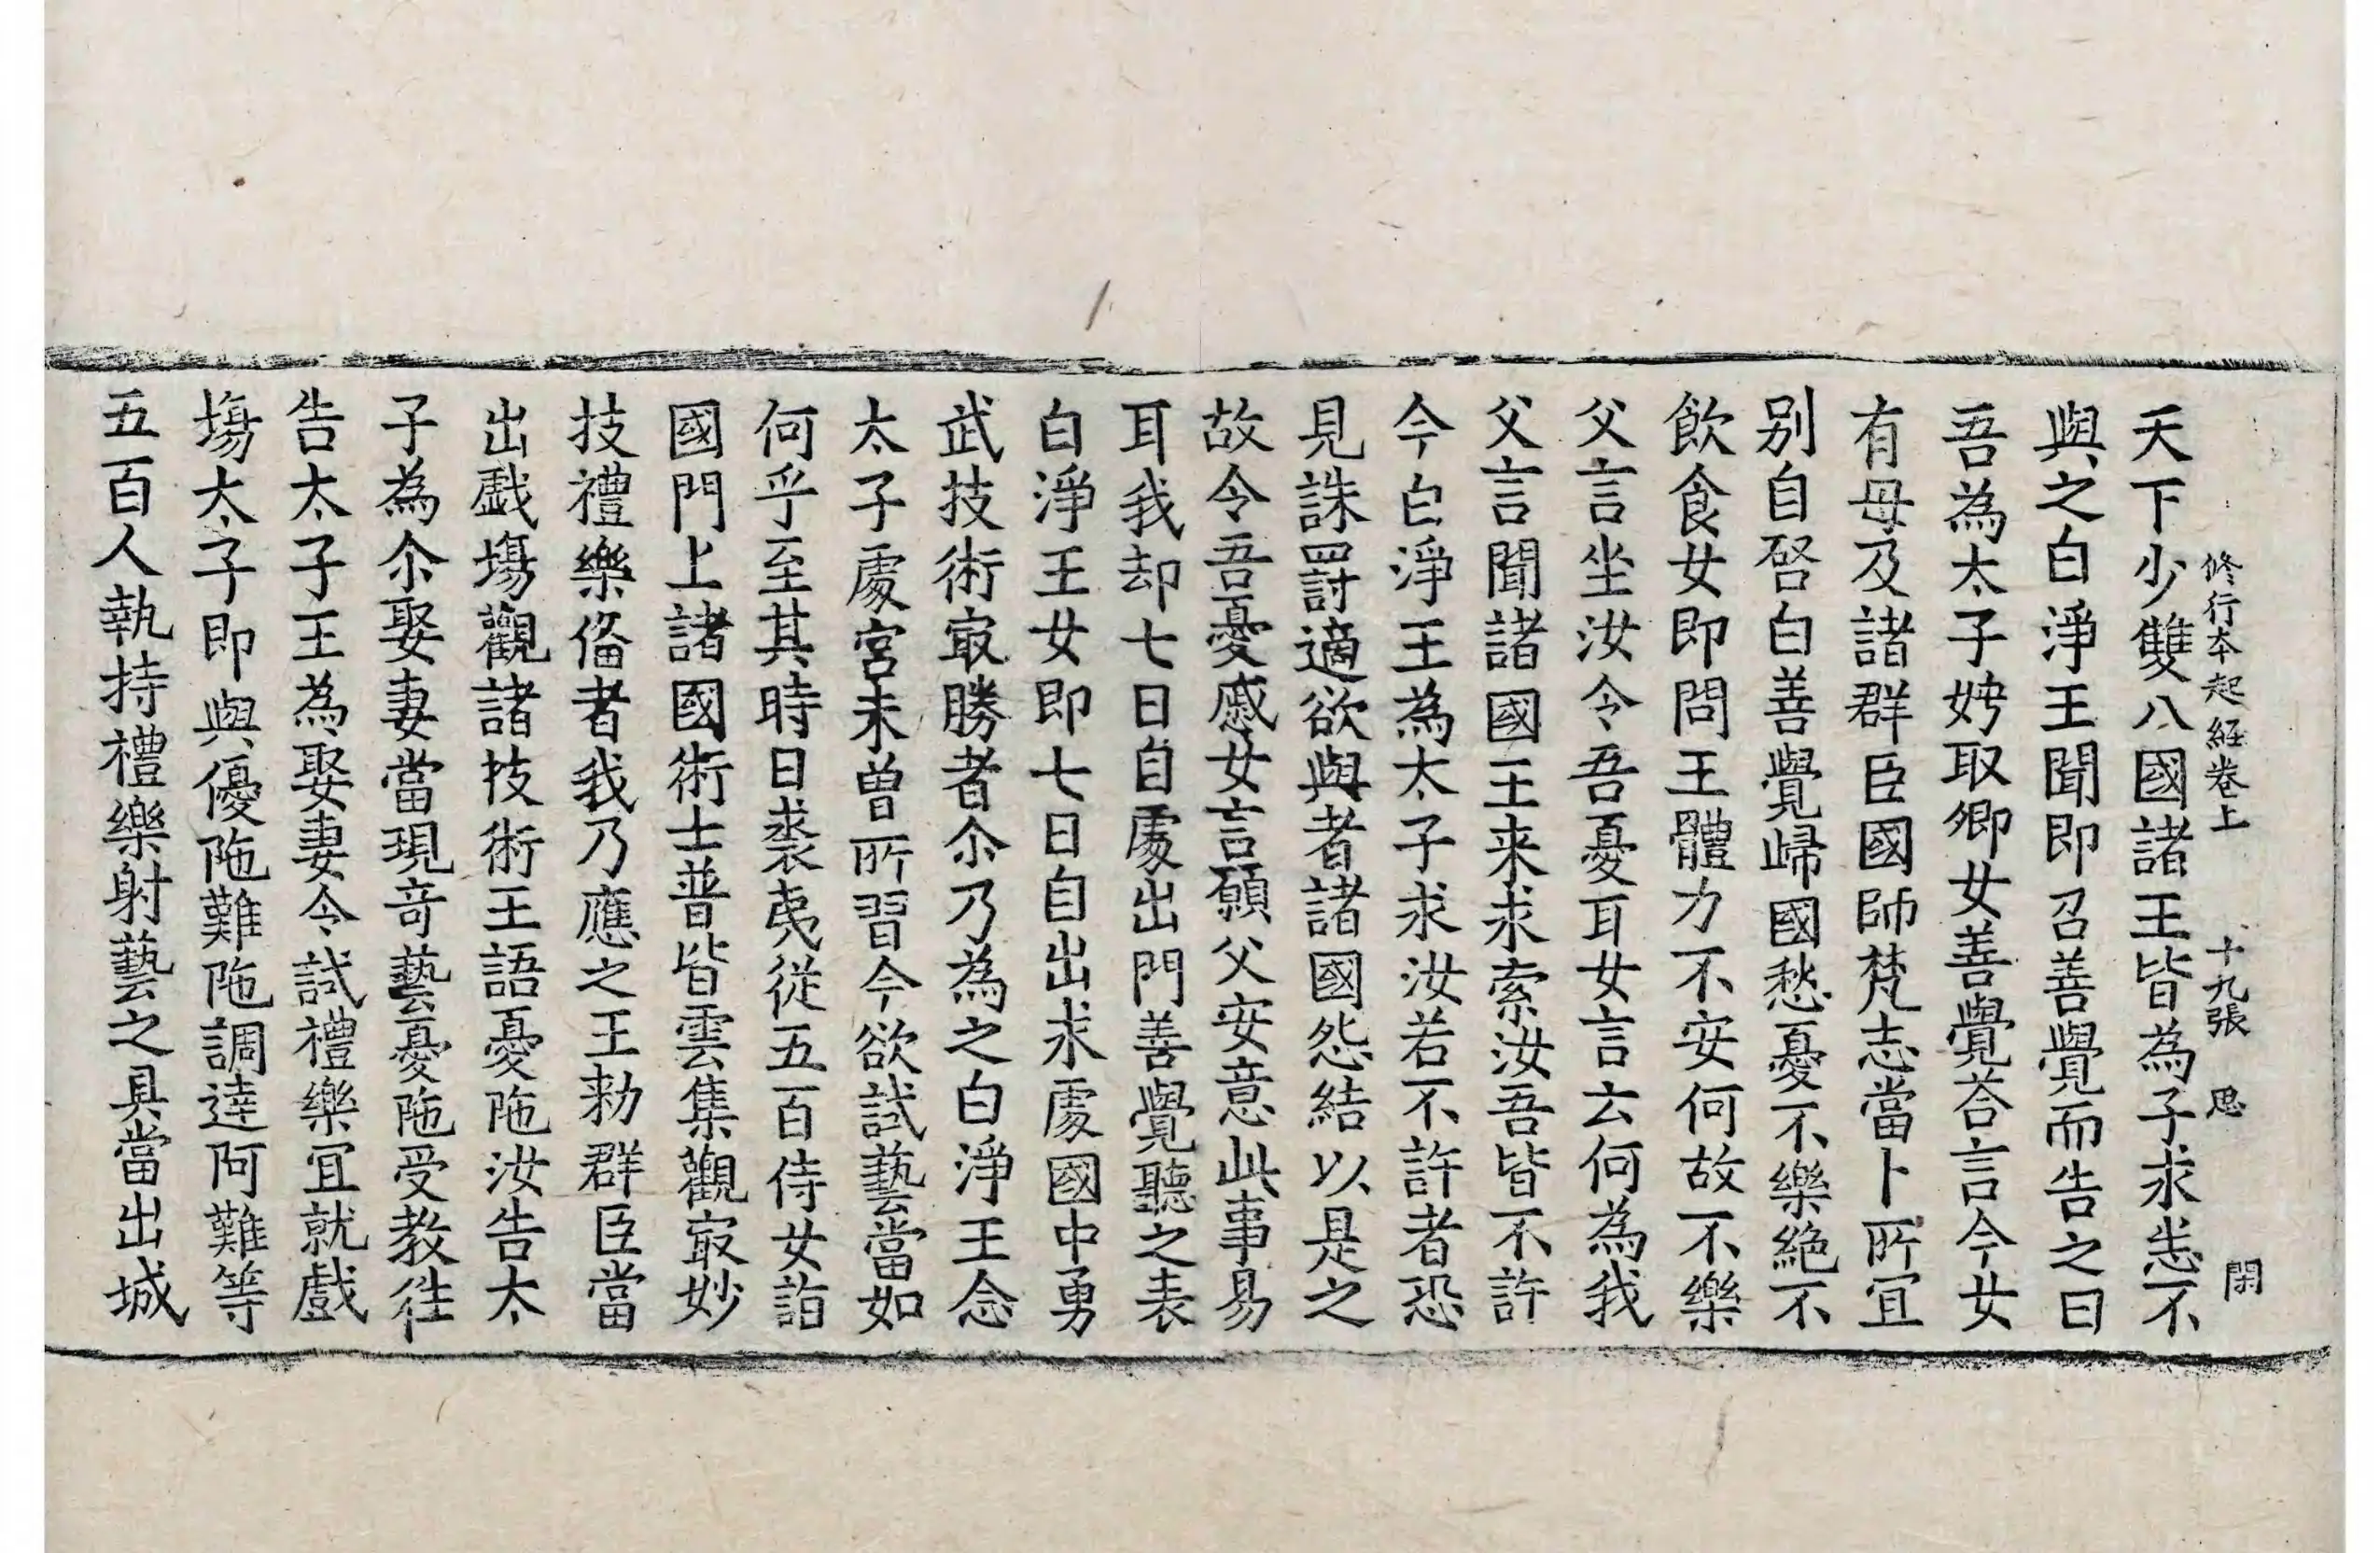 修行夲起經卷上 十九張 思 閑
天下少雙八國諸王皆為子求恚不
與之白淨王聞即召善覺而告之曰
吾為太子娉取卿女善覺荅言今女
有母及諸群臣國師梵志當卜所冝
别自啓白善覺歸國愁憂不樂絶不
飲食女即問王體力不安何故不樂
父言坐汝令吾憂耳女言云何為我
父言聞諸國王来求索汝吾皆不許
今白淨王為太子求汝若不許者恐
見誅罸適欲與者諸國怨結以是之
故令吾憂慼女言願父安意此事易
耳我却七日自處出門善覺聽之表
白淨王女即七日自出求處國中勇
武技術㝡勝者尒乃為之白淨王念
太子處宮未曽所習今欲試藝當如
何乎至其時日裘夷從五百侍女詣
國門上諸國術士普皆雲集觀㝡妙
技禮樂俻者我乃應之王勑群臣當
出戯塲觀諸技術王語憂陁汝告太
子為尒娶妻當現竒藝憂陁受教徃
告太子王為娶妻令試禮樂冝就戲
塲太子即與優陁難陁調達阿難等
五百人執持禮樂射藝之具當出城